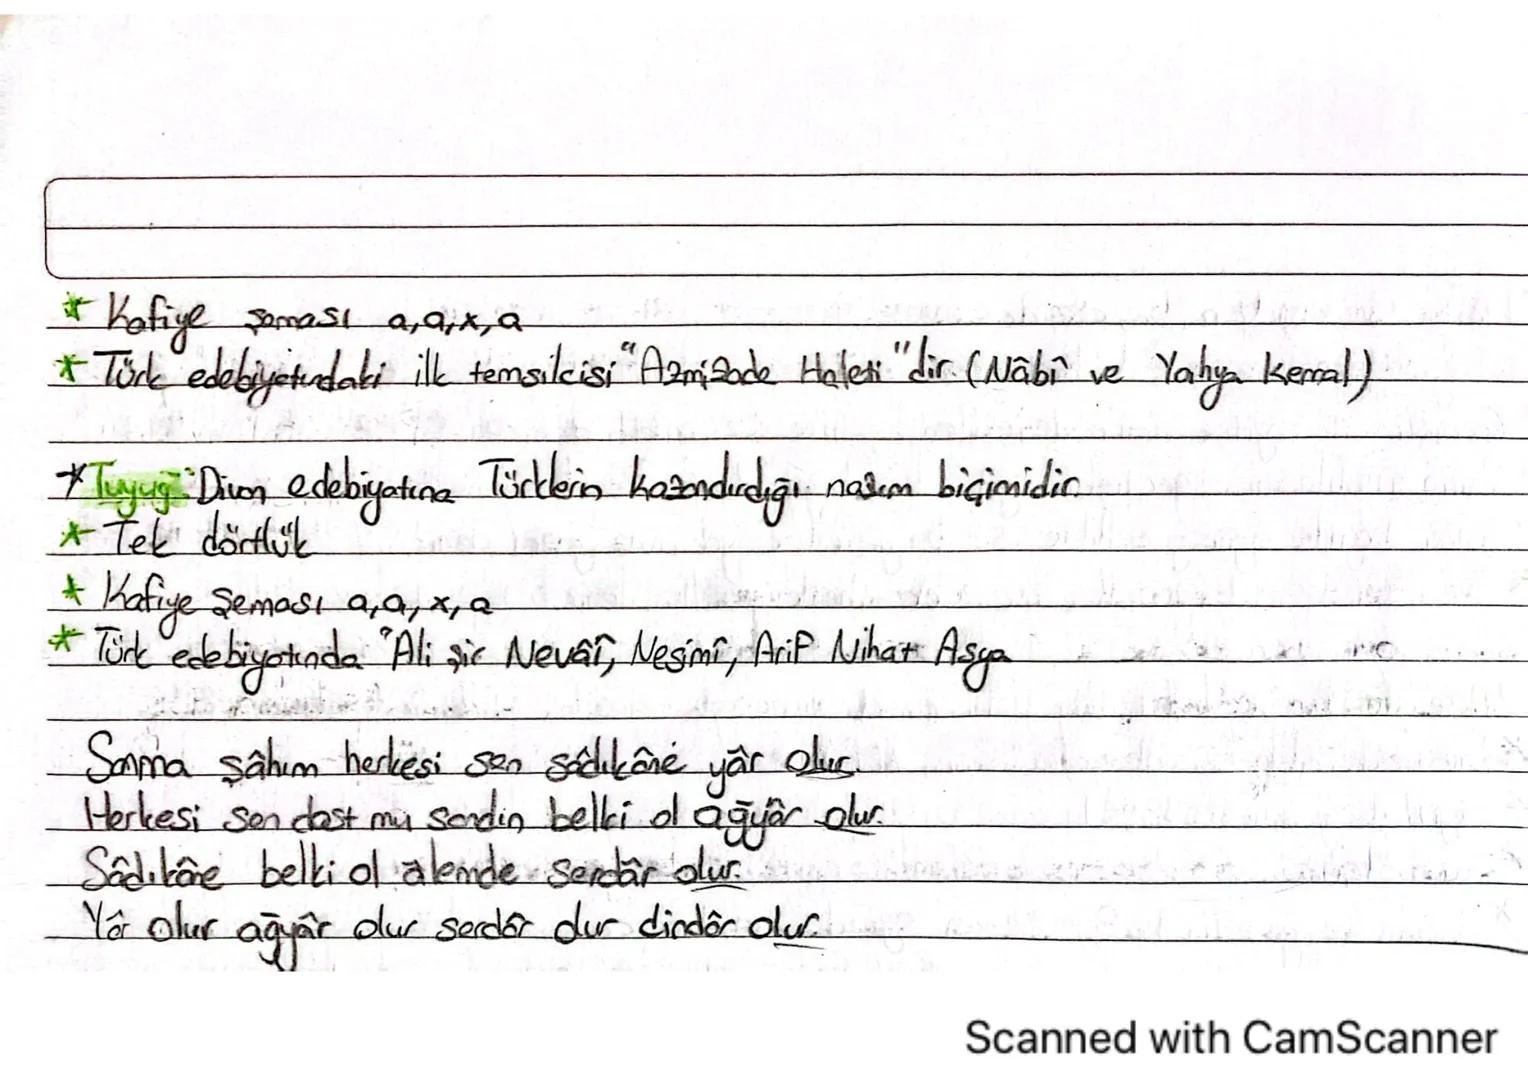 * Kafiye şeması a,a,x,a
* Türk edebiyatındaki ilk temsilcisi "Azmizade Haleti"dir. (Nâbî ve Yahya Kemal)
* Tuyuğ: Divan edebiyatına Türklerin kazandırdığı nazım biçimidir.
* Tek dörtlük
* Kafiye şeması a,a,x,a
* Türk edebiyatında "Ali Şir Nevâî, Nesimî, Arif Nihat Asya
Sanma şâhım herkesi sen sâdıkâne yâr olur.
Herkesi sen dost mu sandın belki ol ağyâr olur.
Sâdıkâne belki ol âlemde serdâr olur.
Yâr olur ağyâr olur serdâr olur dindâr olur.
Scanned with CamScanner